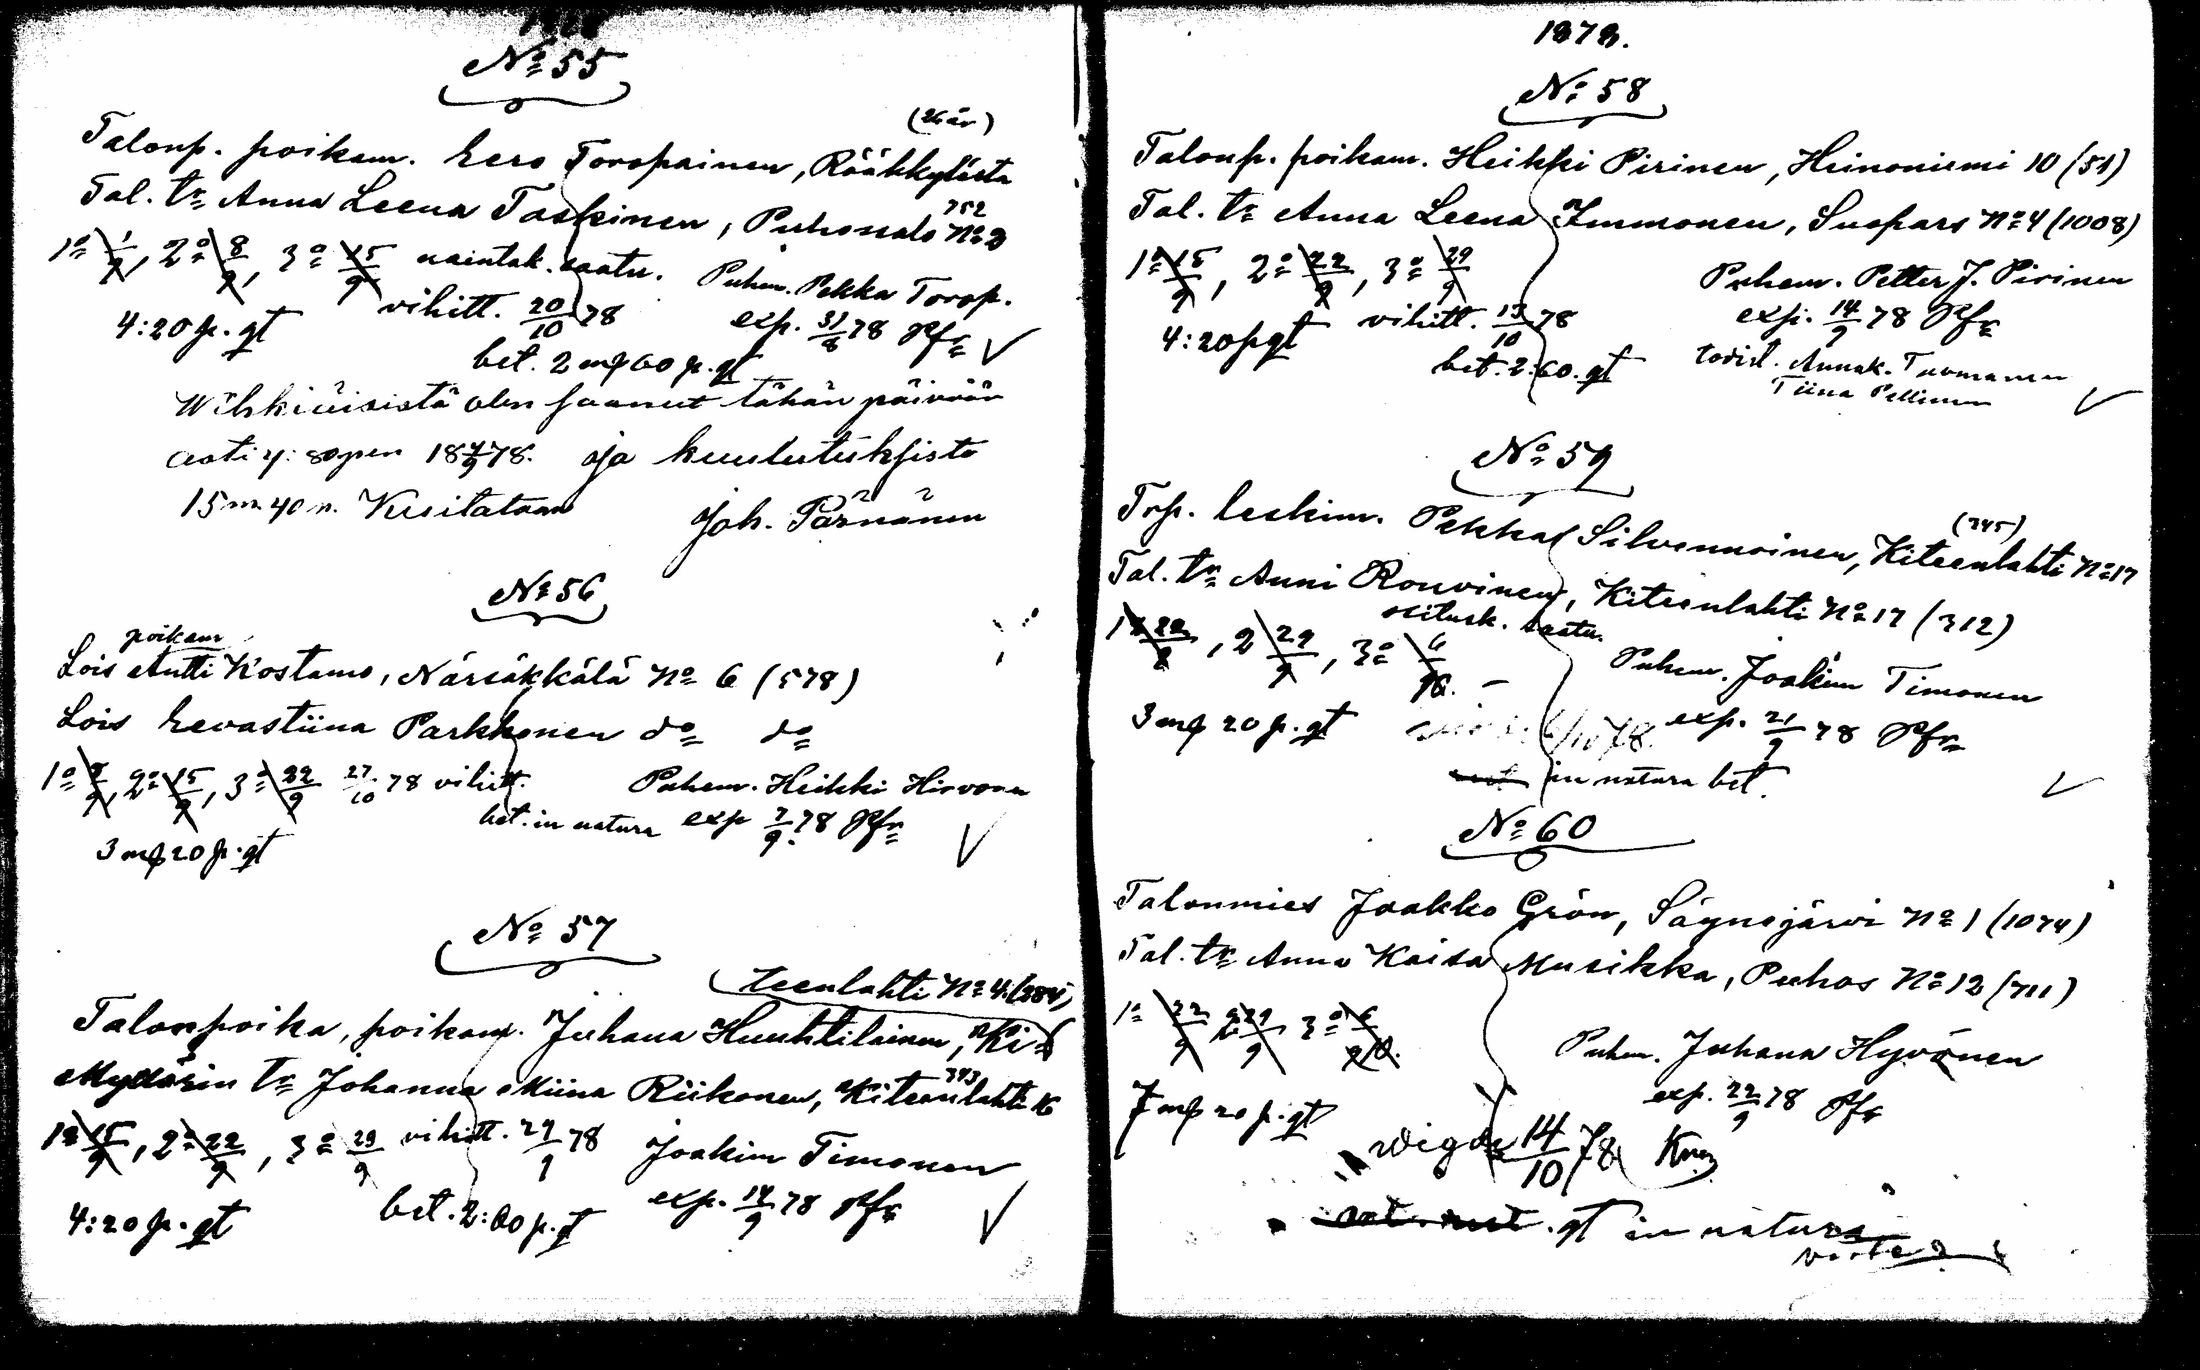 No 55
(26 år)
Talonp. poikam. Eero Toropainen, Rääkkylästä
752
Tal. tr. Anna Leena Taskinen, Puhossalo No 2
1o 1/9, 2o 8/9, 3o 15/9 naintak. saatu. Puhem. Pekka Torop.
4:20 p. gt vihitt. 20/10 78 exp. 31/8 78 Pfr
bet. 2 mp 60 p. gt
Wihkiäisistä olen saanut tähän päivään
asti 18 78. ja kuulutuksista
15 m 40 p. Kuitataan
Joh. Pärnänen
No 56
poikam
Lois Antti Kostamo, Närsäkkälä No 6 (578)
Lois Eevastiina Parkkonen do do
1o 8/9, 2o 15/9, 3o 22/9 27/10 78 vihitt. Puhem. Heikki Hirvonen
bet. in natura exp 7/9 78 Pfr
3 mp 20 p. gt
No 57
teenlahti No 4. (284)
Talonpoika, poikam. Juhana Huuhtilainen, Ki-
343
Myllärin tr Johanna Miina Riikonen, Kiteenlahti 16
1o 15/9, 2o 22/9, 3o 29/9 vihitt. 29/9 78 Joakim Timonen
4:20 p. gt bet. 2:60 p. gt exp. 14/9 78 Pfr
1878.
No 58
Talonp. poikam. Heikki Pirinen, Heinoniemi 10 (51)
Tal. tr Anna Leena Immonen, Suopars No 4 (1008)
1o 15/9, 2o 22/9, 3o 29/9 Puhem. Petter J. Pirinen
4:20 p gt vihitt. 13/10 78 exp. 14/9 78 Pfr
bet. 2:60. gt todist. Annak. Tuomanen
Tiina Pellinen
No 59
(345)
Trp. leskim. Pekka Silvennoinen, Kiteenlahti No 17
Tal. tr Anni Rouvinen, Kiteenlahti No 17 (312)
seitusk. saatu.
1o 22/9, 2 29/9, 3o 6/10. Puhem. Joakim Timonen
3 mp 20 p. gt 6/10 78. exp. 21/9 78 Pfr
in natura bet.
No 60
Talonmies Jaakko Grön, Säynejärvi No 1 (1074)
Tal. tr Anna Kaisa Musikka, Puhos No 12 (711)
1o 22/9 2o 29/9 3o 6/10. Puhem. Juhana Hyvönen
7 mp 20 p. gt exp. 22/9 78 Pfr
Wigde 14/10 78
gt in natura